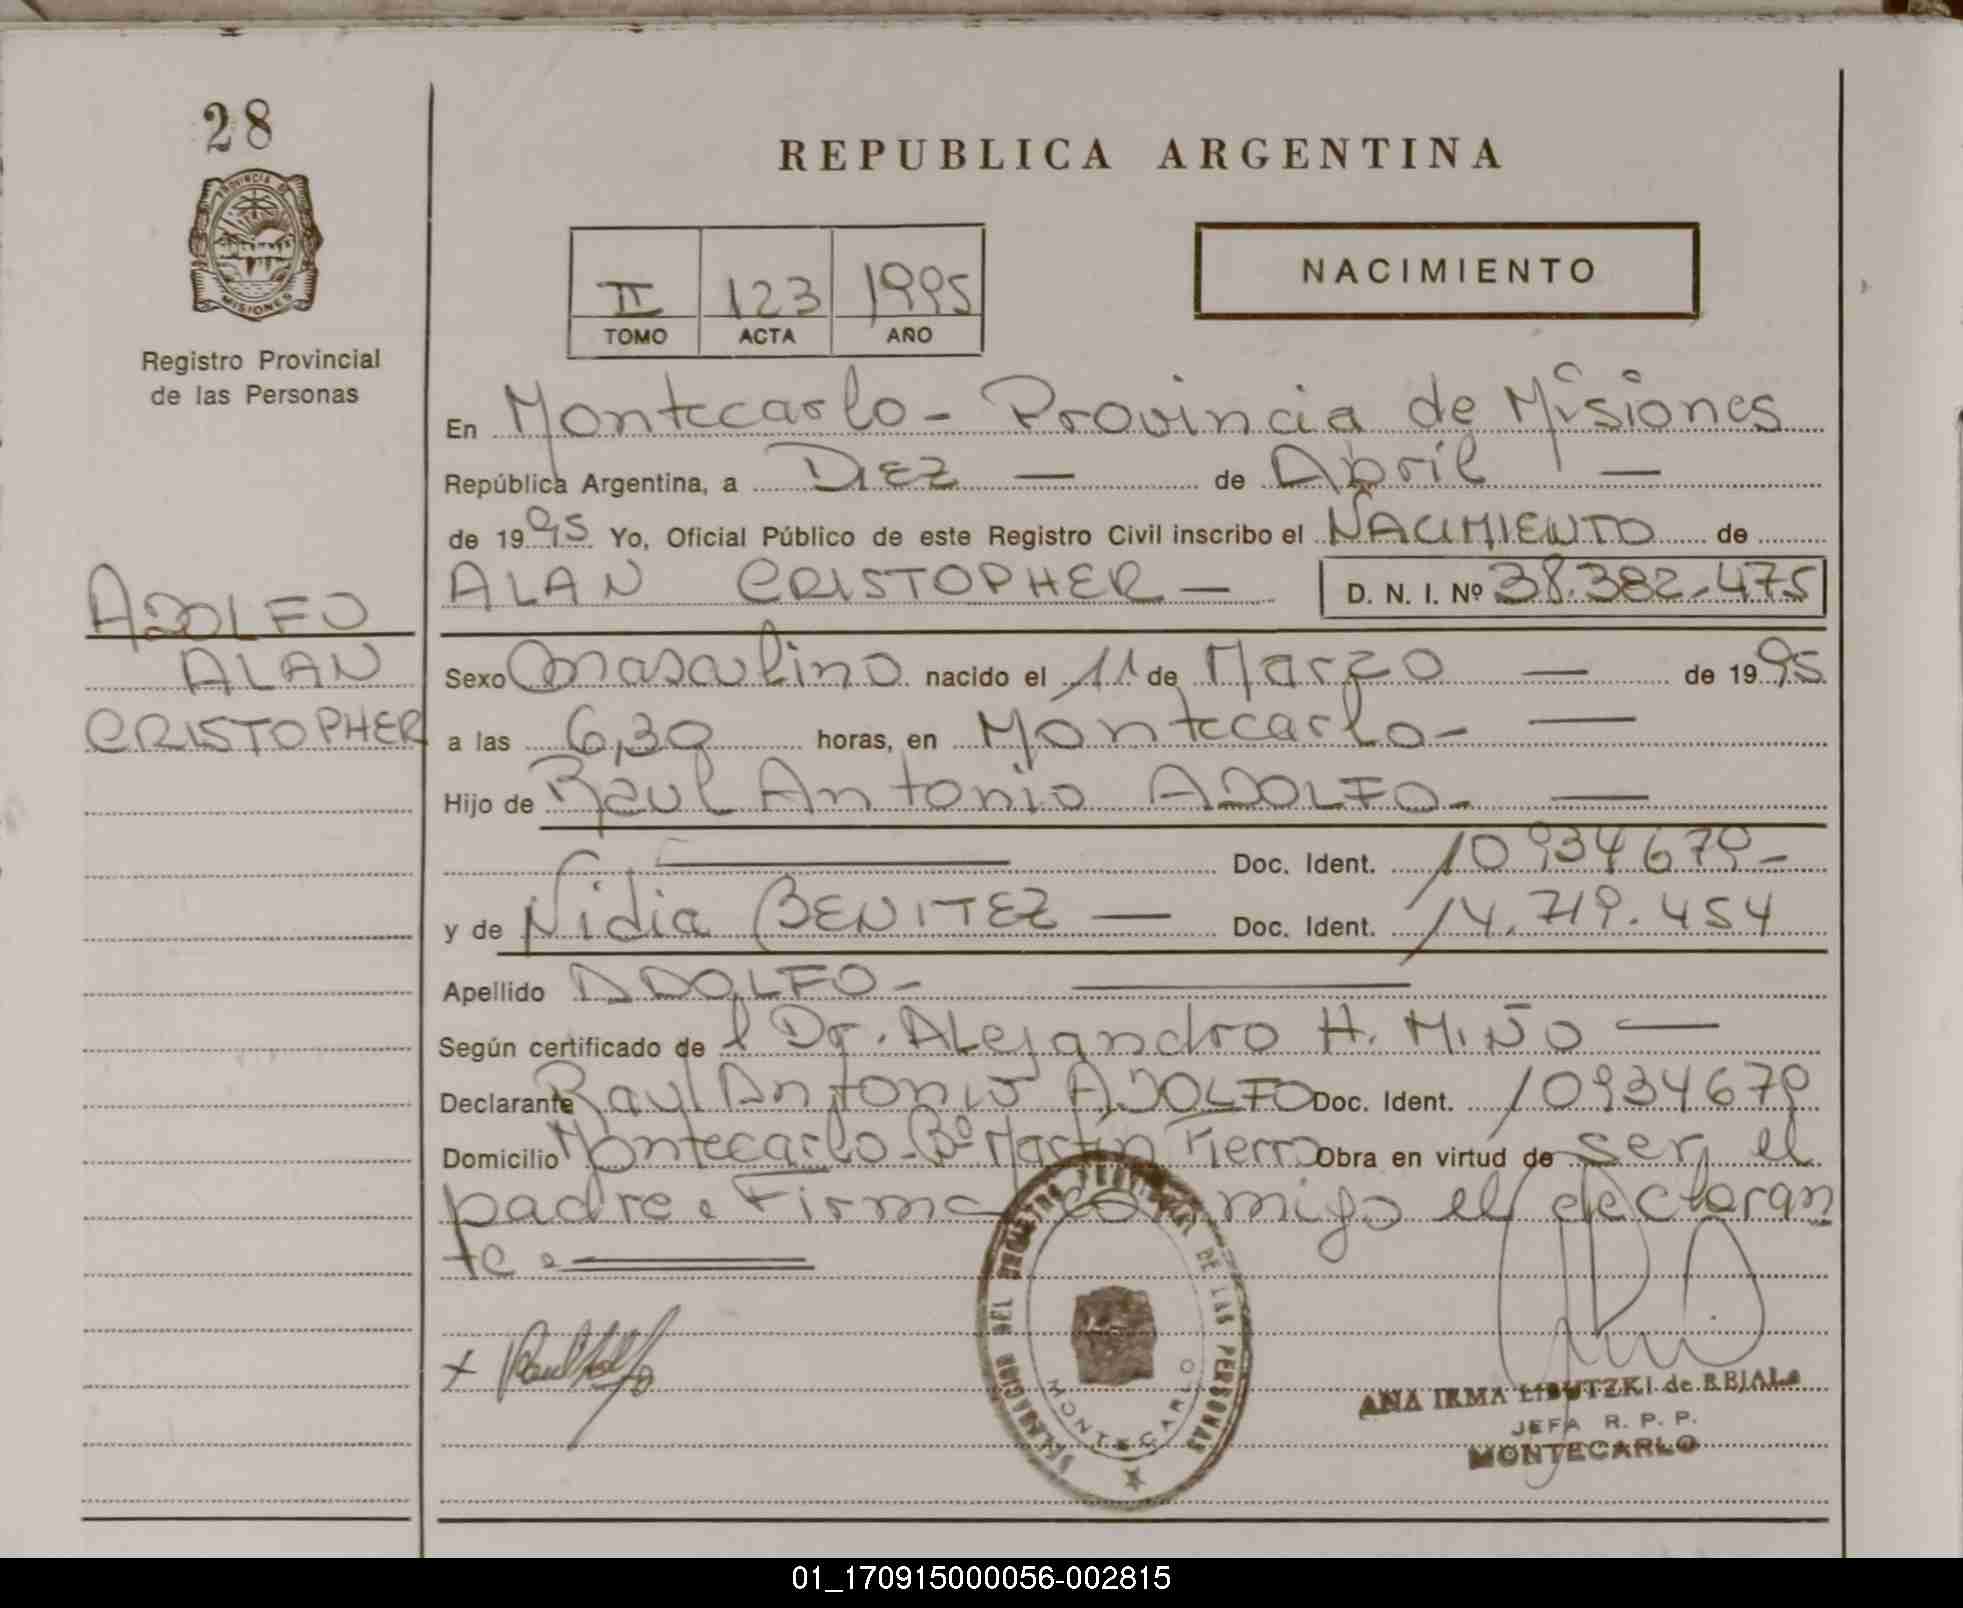 28
PROVINCIA DE
MISIONES
Registro Provincial
de las Personas
ADOLFO
ALAN
CRISTOPHER
REPUBLICA ARGENTINA
II 123 1995
TOMO ACTA AÑO
NACIMIENTO
En Montecarlo - Provincia de Misiones
República Argentina, a DIEZ — de Abril —
de 1995 Yo, Oficial Público de este Registro Civil inscribo el NACIMIENTO de
ALAN CRISTOPHER — D. N. I. Nº 38.382.475
Sexo masculino nacido el 11 de Marzo — de 1995
a las 6,30 horas, en Montecarlo - —
Hijo de Raul Antonio ADOLFO - —
— Doc. Ident. 10934679 -
y de Nidia BENITEZ — Doc. Ident. 14.719.454
Apellido ADOLFO - —
Según certificado de l Dr. Alejandro H. MIÑO —
Declarante Raul Antonio ADOLFO Doc. Ident. 10934679
Domicilio Montecarlo - Bº Martín Fierro Obra en virtud de ser el
padre. Firma con migo el declaran
te.
DELEGACION DEL REGISTRO PROVINCIAL DE LAS PERSONAS
MONTECARLO
X Raul Adolfo
ANA IRMA de REJALA
JEFA R. P. P.
MONTECARLO
01_170915000056-002815